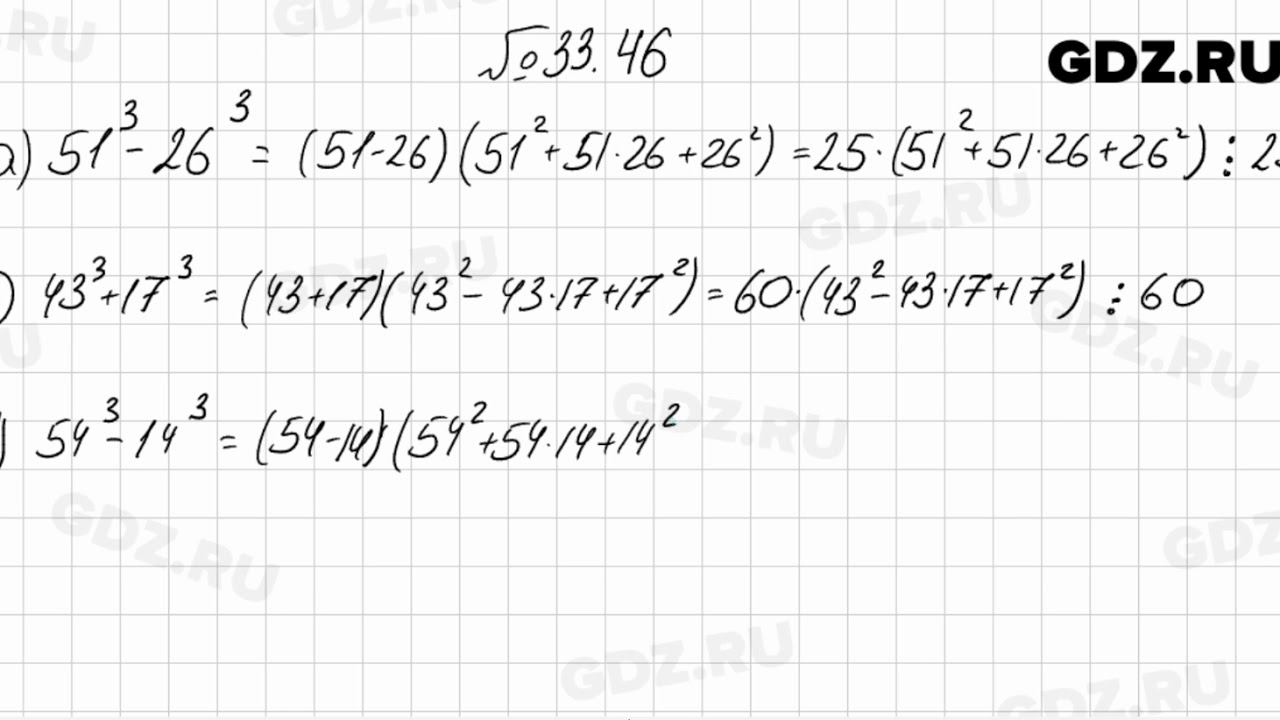 №33.46
GDZ.RU
а) 51³-26³ = (51-26)(51²+51·26+26²) =25·(51²+51·26+26²)⋮25
) 43³+17³ = (43+17)(43²-43·17+17²)=60·(43²-43·17+17²)⋮60
) 54³-14³ = (54-14)(54²+54·14+14²